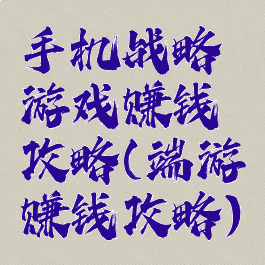 手机战略
游戏赚钱
攻略(端游
赚钱攻略)